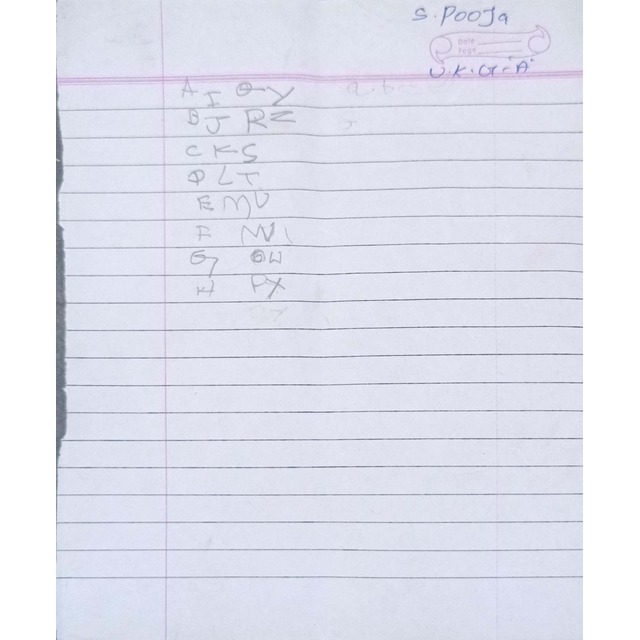 S. Pooja
Date
Page
U.K.G-"A"
A I Q Y a b
B J R Z
C K S
D L T
E M U
F N V
G O W
H P X